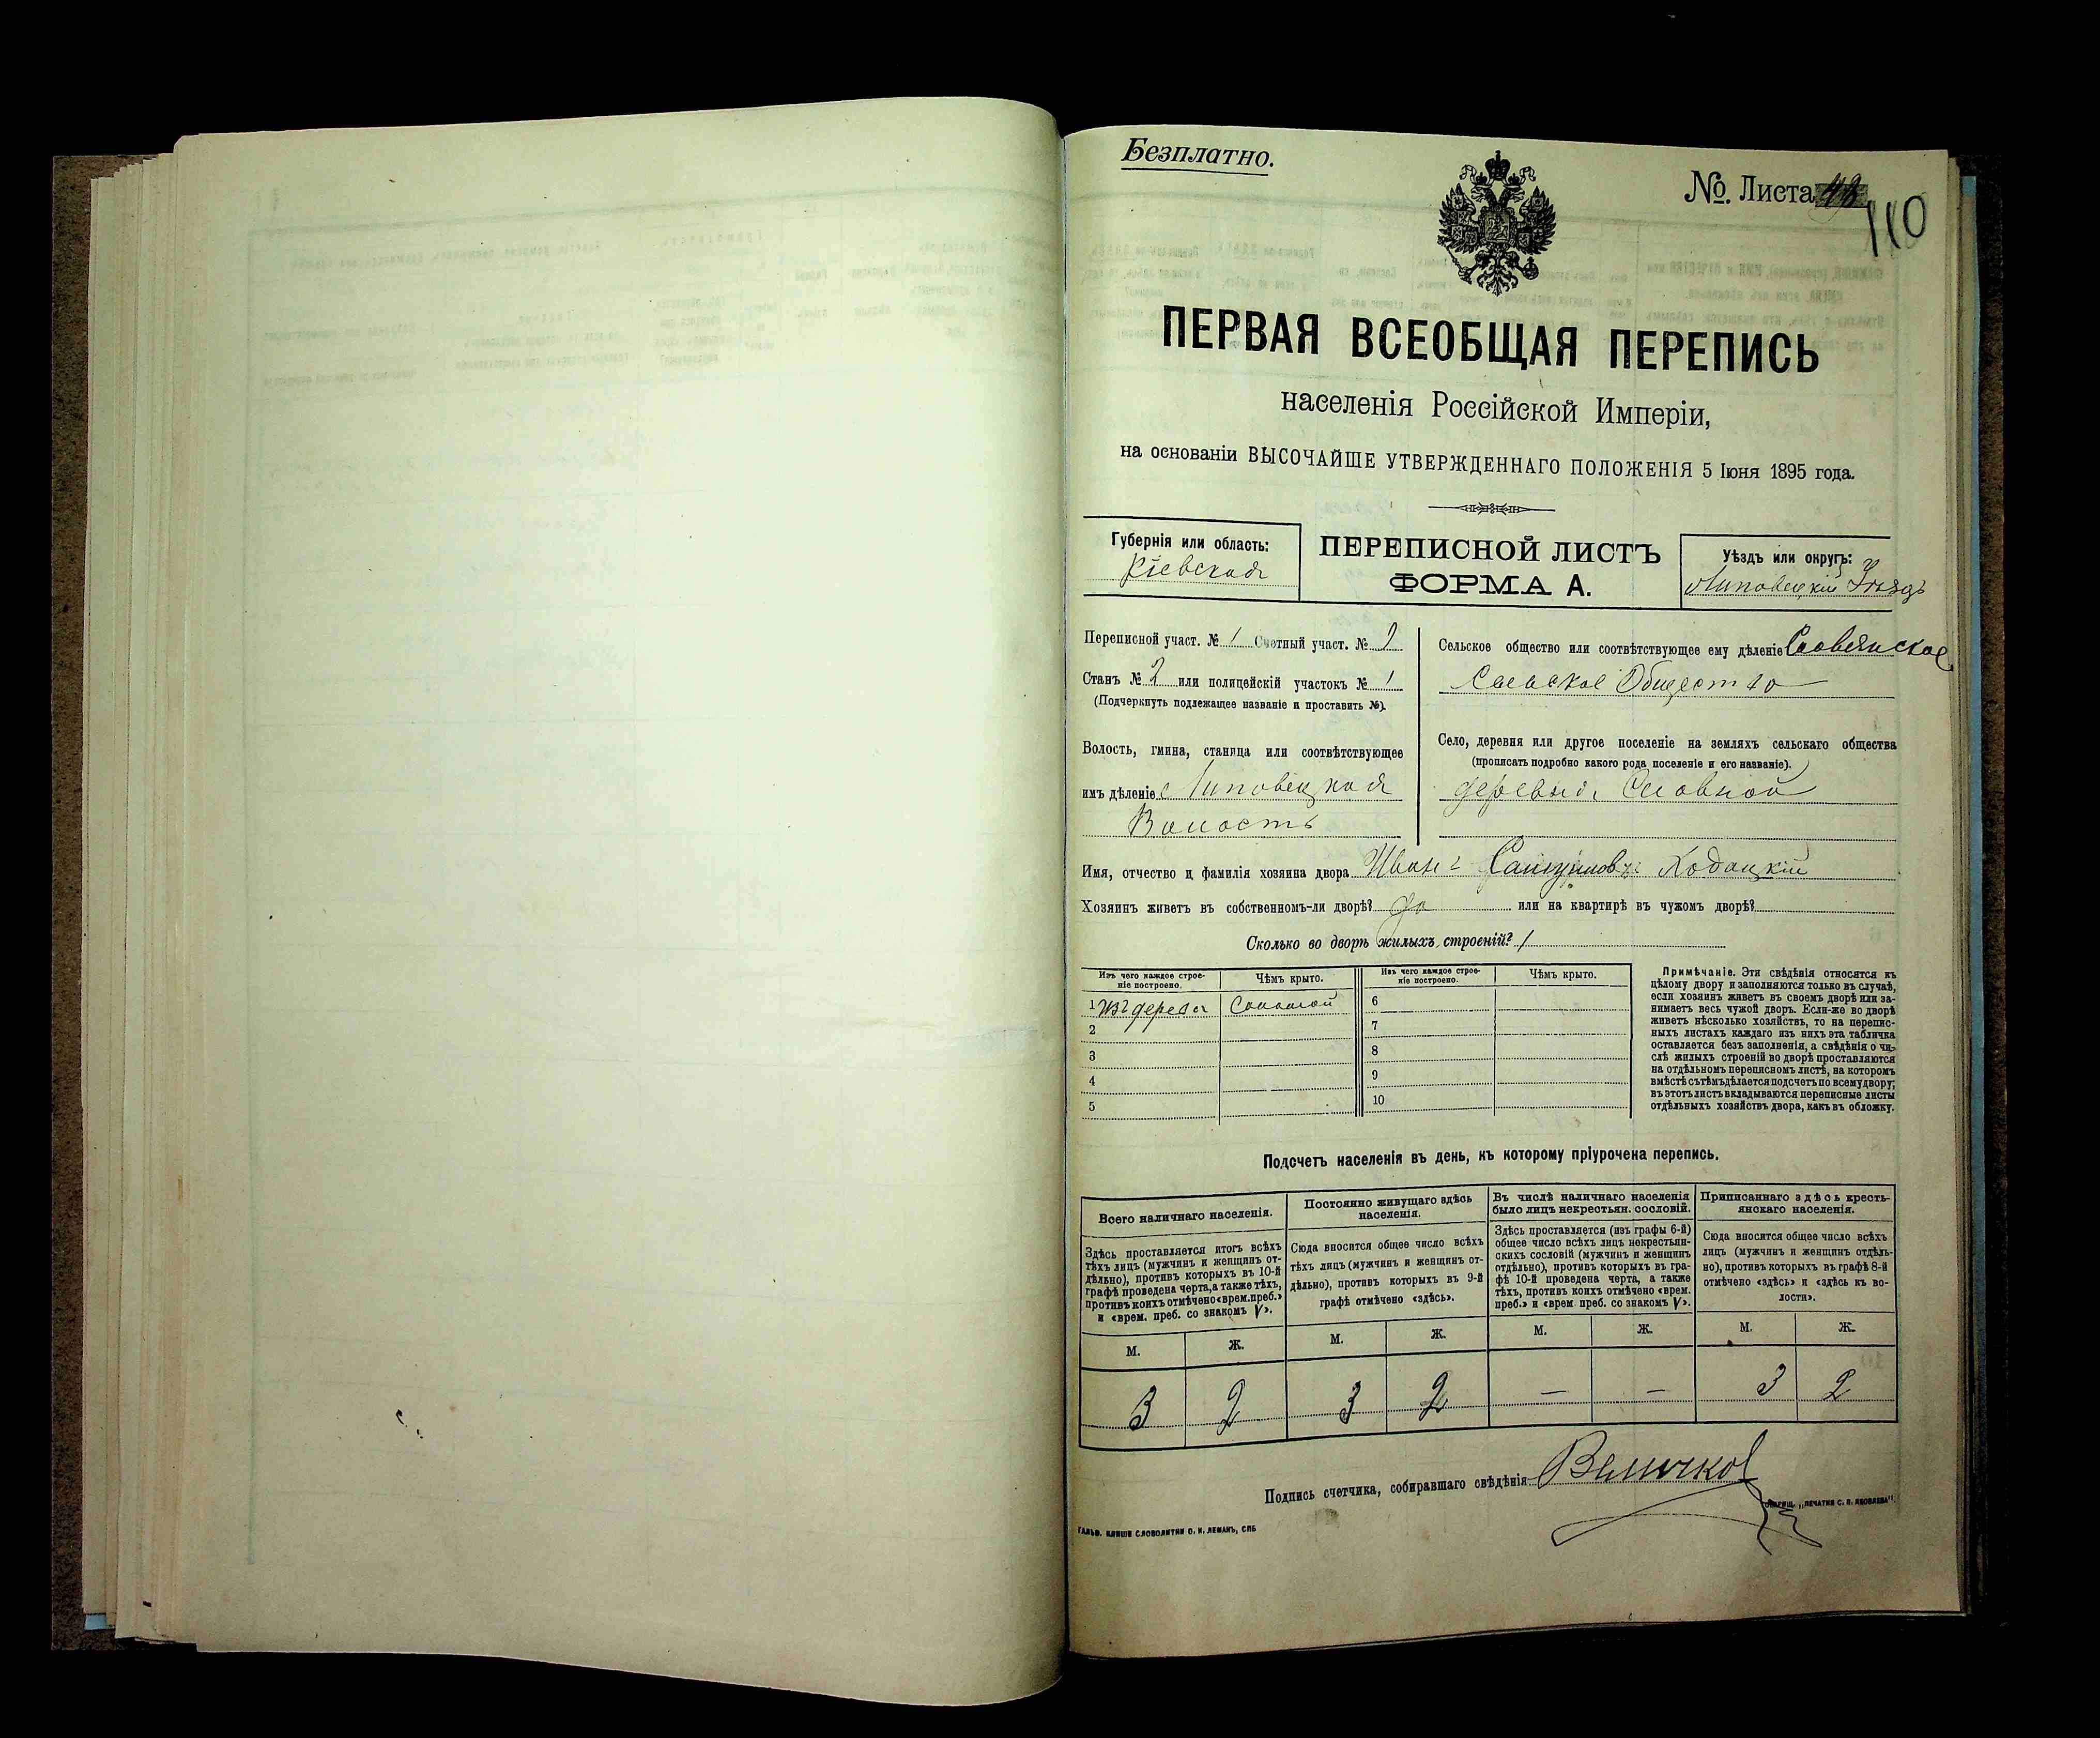 Безплатно.
№. Листа
110
ПЕРВАЯ ВСЕОБЩАЯ ПЕРЕПИСЬ
населенія Россійской Имперіи,
на основаніи ВЫСОЧАЙШЕ УТВЕРЖДЕННАГО ПОЛОЖЕНІЯ 5 Іюня 1895 года.
Губернія или область:
Кіевская
ПЕРЕПИСНОЙ ЛИСТЪ
ФОРМА А.
Уѣздъ или округъ:
Липовецкій Уѣздъ
Переписной участ. № 1 Счетный участ. № 2
Станъ № 2 или полицейскій участокъ № 1
(Подчеркнуть подлежащее названіе и проставить №).
Волость, гмина, станица или соотвѣтствующее
имъ дѣленіе Липовецкая
Волость
Сельское общество или соотвѣтствующее ему дѣленіе
Сельское Общество
Село, деревня или другое поселеніе на земляхъ сельскаго общества
(прописать подробно какого рода поселеніе и его названіе).
деревня
Имя, отчество и фамилія хозяина двора Иванъ Ходацкій
Хозяинъ живетъ въ собственномъ-ли дворѣ? да или на квартирѣ въ чужомъ дворѣ?
Сколько во дворѣ жилыхъ строеній? 1
Изъ чего каждое строе-
ніе построено.
Чѣмъ крыто.
Изъ чего каждое строе-
ніе построено.
Чѣмъ крыто.
1 Изъ дерева Соломой 6
2 7
3 8
4 9
5 10
Примѣчаніе. Эти свѣдѣнія относятся къ
цѣлому двору и заполняются только въ случаѣ,
если хозяинъ живетъ въ своемъ дворѣ или за-
нимаетъ весь чужой дворъ. Если-же во дворѣ
живетъ нѣсколько хозяйствъ, то на перепис-
ныхъ листахъ каждаго изъ нихъ эта табличка
оставляется безъ заполненія, а свѣдѣнія о чи-
слѣ жилыхъ строеній во дворѣ проставляются
на отдѣльномъ переписномъ листѣ, на которомъ
вмѣстѣ съ тѣмъ дѣлается подсчетъ по всему двору;
въ этотъ листъ вкладываются переписные листы
отдѣльныхъ хозяйствъ двора, какъ въ обложку.
Подсчетъ населенія въ день, къ которому пріурочена перепись.
Всего наличнаго населенія.
Здѣсь проставляется итогъ всѣхъ
тѣхъ лицъ (мужчинъ и женщинъ от-
дѣльно), противъ которыхъ въ 10-й
графѣ проведена черта, а также тѣхъ,
противъ коихъ отмѣчено «врем. преб.»
и «врем. преб. со знакомъ V».
Постоянно живущаго здѣсь
населенія.
Сюда вносится общее число всѣхъ
тѣхъ лицъ (мужчинъ и женщинъ от-
дѣльно), противъ которыхъ въ 9-й
графѣ отмѣчено «здѣсь».
Въ числѣ наличнаго населенія
было лицъ некрестьян. сословій.
Здѣсь проставляется (изъ графы 6-й)
общее число всѣхъ лицъ некрестьян-
скихъ сословій (мужчинъ и женщинъ
отдѣльно), противъ которыхъ въ гра-
фѣ 10-й проведена черта, а также
тѣхъ, противъ коихъ отмѣчено «врем.
преб.» и «врем преб. со знакомъ V».
Приписаннаго здѣсь кресть-
янскаго населенія.
Сюда вносится общее число всѣхъ
лицъ (мужчинъ и женщинъ отдѣль-
но), противъ которыхъ въ графѣ 8-й
отмѣчено «здѣсь» и «здѣсь къ во-
лости».
М. Ж. М. Ж. М. Ж. М. Ж.
3 2 3 2 — — 3 2
Подпись счетчика, собиравшаго свѣдѣнія
ГАЛЬВ. КЛИШЕ СЛОВОЛИТНИ О. И. ЛЕМАНЪ, СПБ
ТОВАРИЩ. „ПЕЧАТНЯ С. П. ЯКОВЛЕВА".